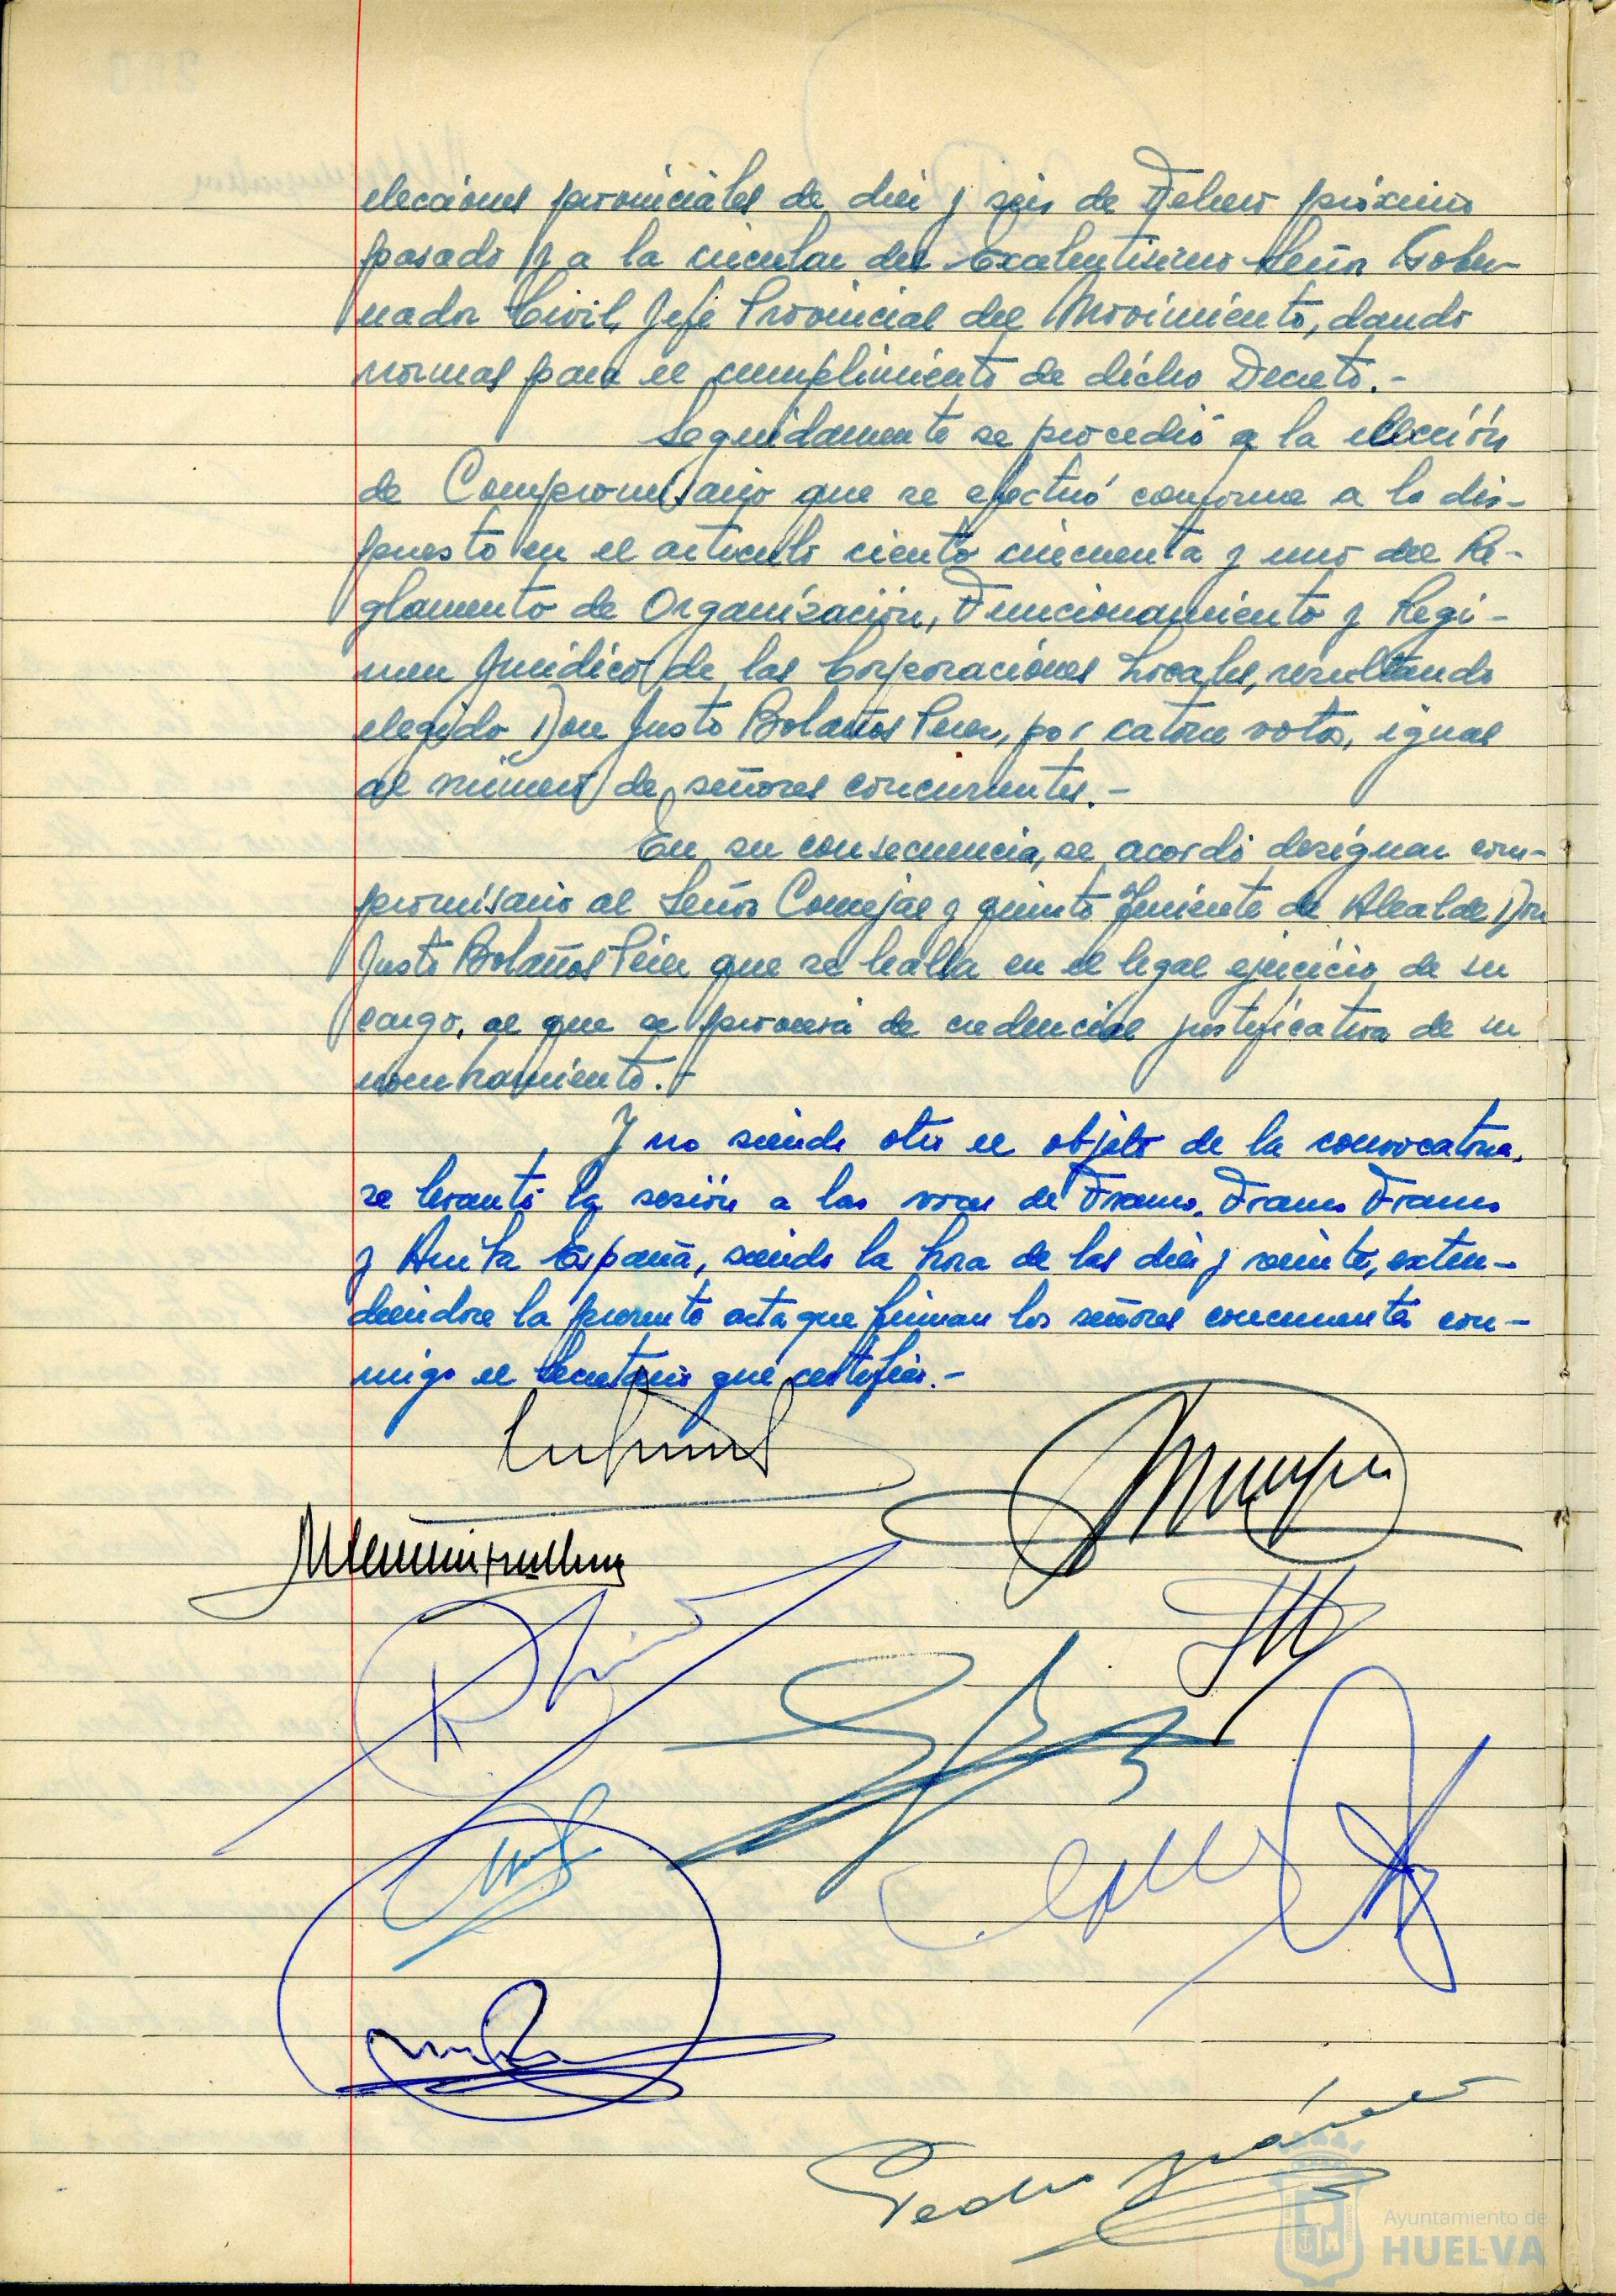 elecciones provinciales de diez y seis de Febrero próximo
pasado y a la circular del Excelentísimo Señor Gober-
nador Civil, Jefe Provincial del Movimiento, dando
normas para el cumplimiento de dicho Decreto.-
Seguidamente se procedió a la elección
de Compromisario que se efectuó conforme a lo dis-
puesto en el artículo ciento cincuenta y uno del Re-
glamento de Organización, Funcionamiento y Regi-
men Jurídico de las Corporaciones Locales, resultando
elegido Don Justo Bolaños Perez, por catorce votos, igual
al número de señores concurrentes.-
En su consecuencia, se acordó designar com-
promisario al Señor Concejal y quinto Teniente de Alcalde Don
Justo Bolaños Pérez que se halla en el legal ejercicio de su
cargo, al que se proveerá de credencial justificativa de su
nombramiento.-
Y no siendo otro el objeto de la convocatoria,
se levantó la sesión a las voces de Franco, Franco Franco
y Arriba España, siendo la hora de las diez y veinte, exten-
diendose la presente acta que firman los señores concurrentes con-
migo el Secretario que certifico.-
Pedro
Ayuntamiento de
HUELVA